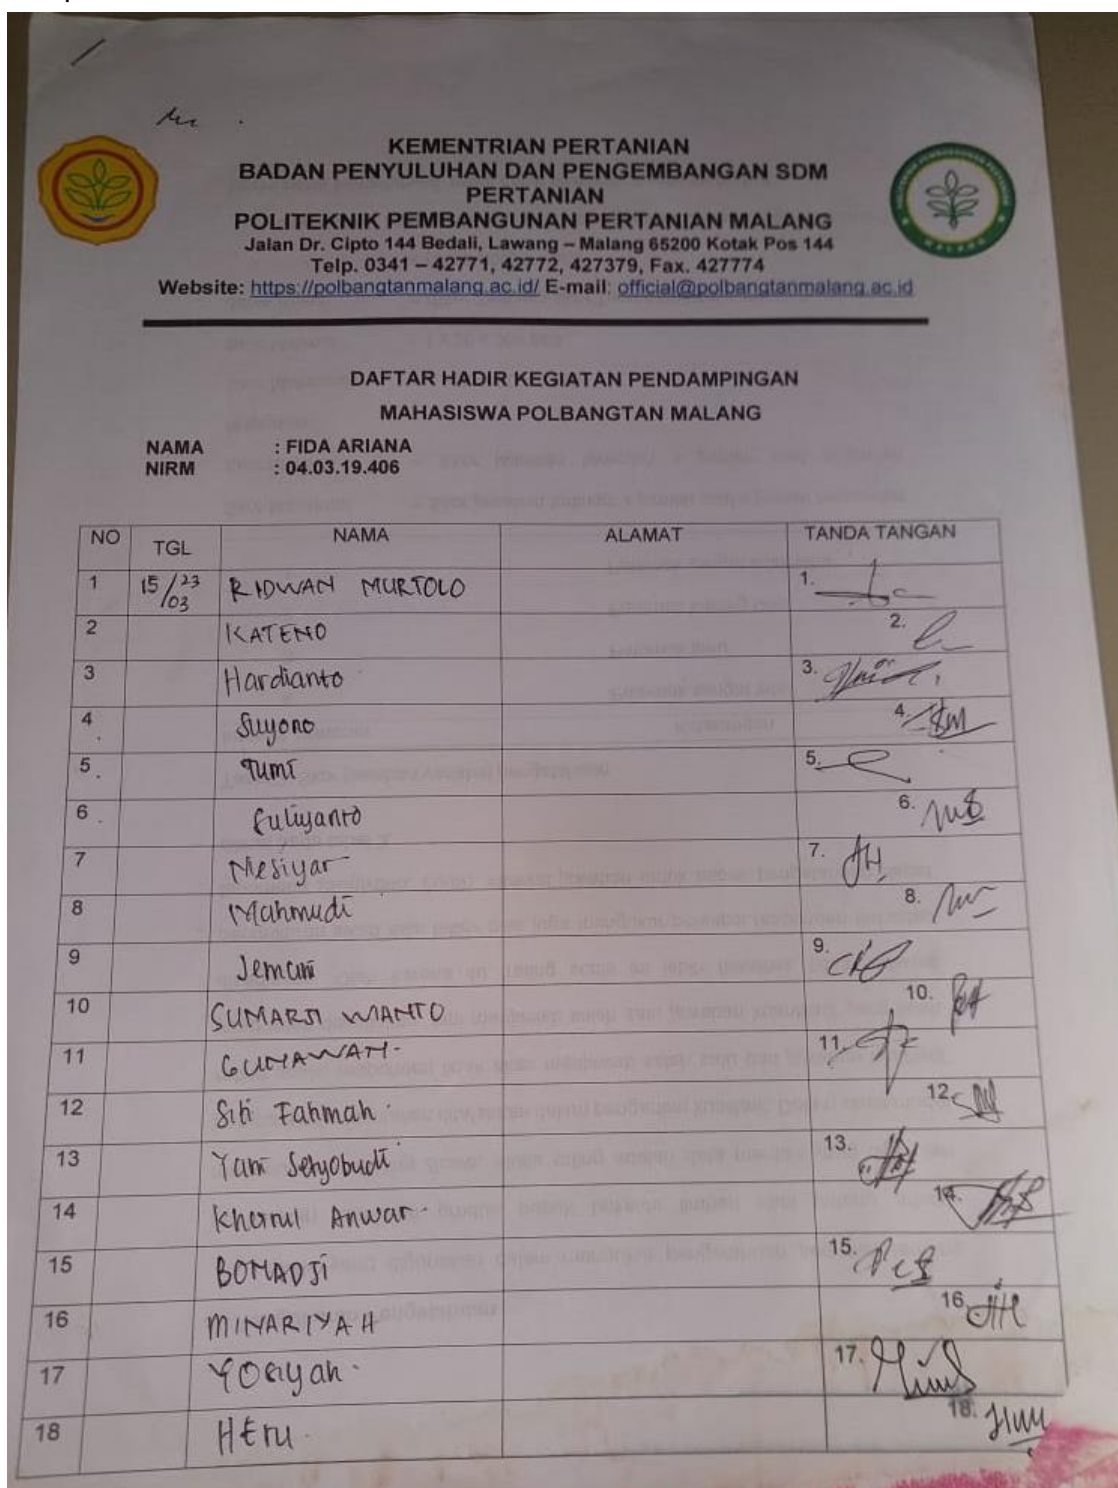 KEMENTRIAN PERTANIAN
BADAN PENYULUHAN DAN PENGEMBANGAN SDM
PERTANIAN
POLITEKNIK PEMBANGUNAN PERTANIAN MALANG
Jalan Dr. Cipto 144 Bedali, Lawang – Malang 65200 Kotak Pos 144
Telp. 0341 – 42771, 42772, 427379, Fax. 427774
Website: https://polbangtanmalang.ac.id/ E-mail: official@polbangtanmalang.ac.id
DAFTAR HADIR KEGIATAN PENDAMPINGAN
MAHASISWA POLBANGTAN MALANG
NAMA : FIDA ARIANA
NIRM : 04.03.19.406
NO TGL NAMA ALAMAT TANDA TANGAN
1 15/23/03 RIDWAN MURTOLO 1.
2 KATENO 2.
3 Hardianto 3.
4 Suyono 4.
5 Tumi 5.
6 Suliyanto 6.
7 Mesiyar 7.
8 Mahmudi 8.
9 Jemani 9.
10 SUMARJI WIANTO 10.
11 GUNAWAN 11.
12 Siti Fatimah 12.
13 Yani Setyobudi 13.
14 Khoirul Anwar 14.
15 BONADJI 15.
16 MINARIYAH 16.
17 YOSIYAH 17.
18 HERU 18.